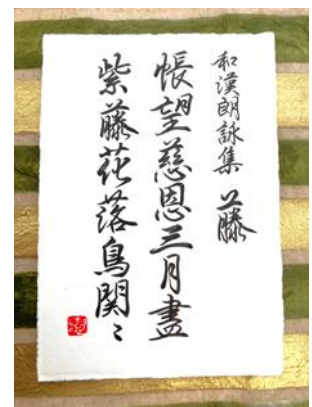 和漢朗詠集 藤
悵望慈恩三月盡
紫藤花落鳥関〻